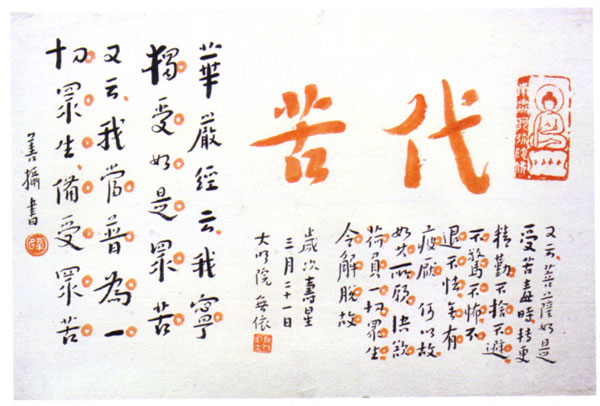 代苦
華嚴經云我寧
獨受如是眾苦
又云我當普為一
切眾生備受眾苦
善攝書
又云菩薩如是
受苦毒時轉更
精勤不捨不避
不驚不怖不
退不怯无有
疲厭何以故
如其所願決欲
荷負一切眾生
令解脫故
歲次壽星
三月二十一日
大明院無依